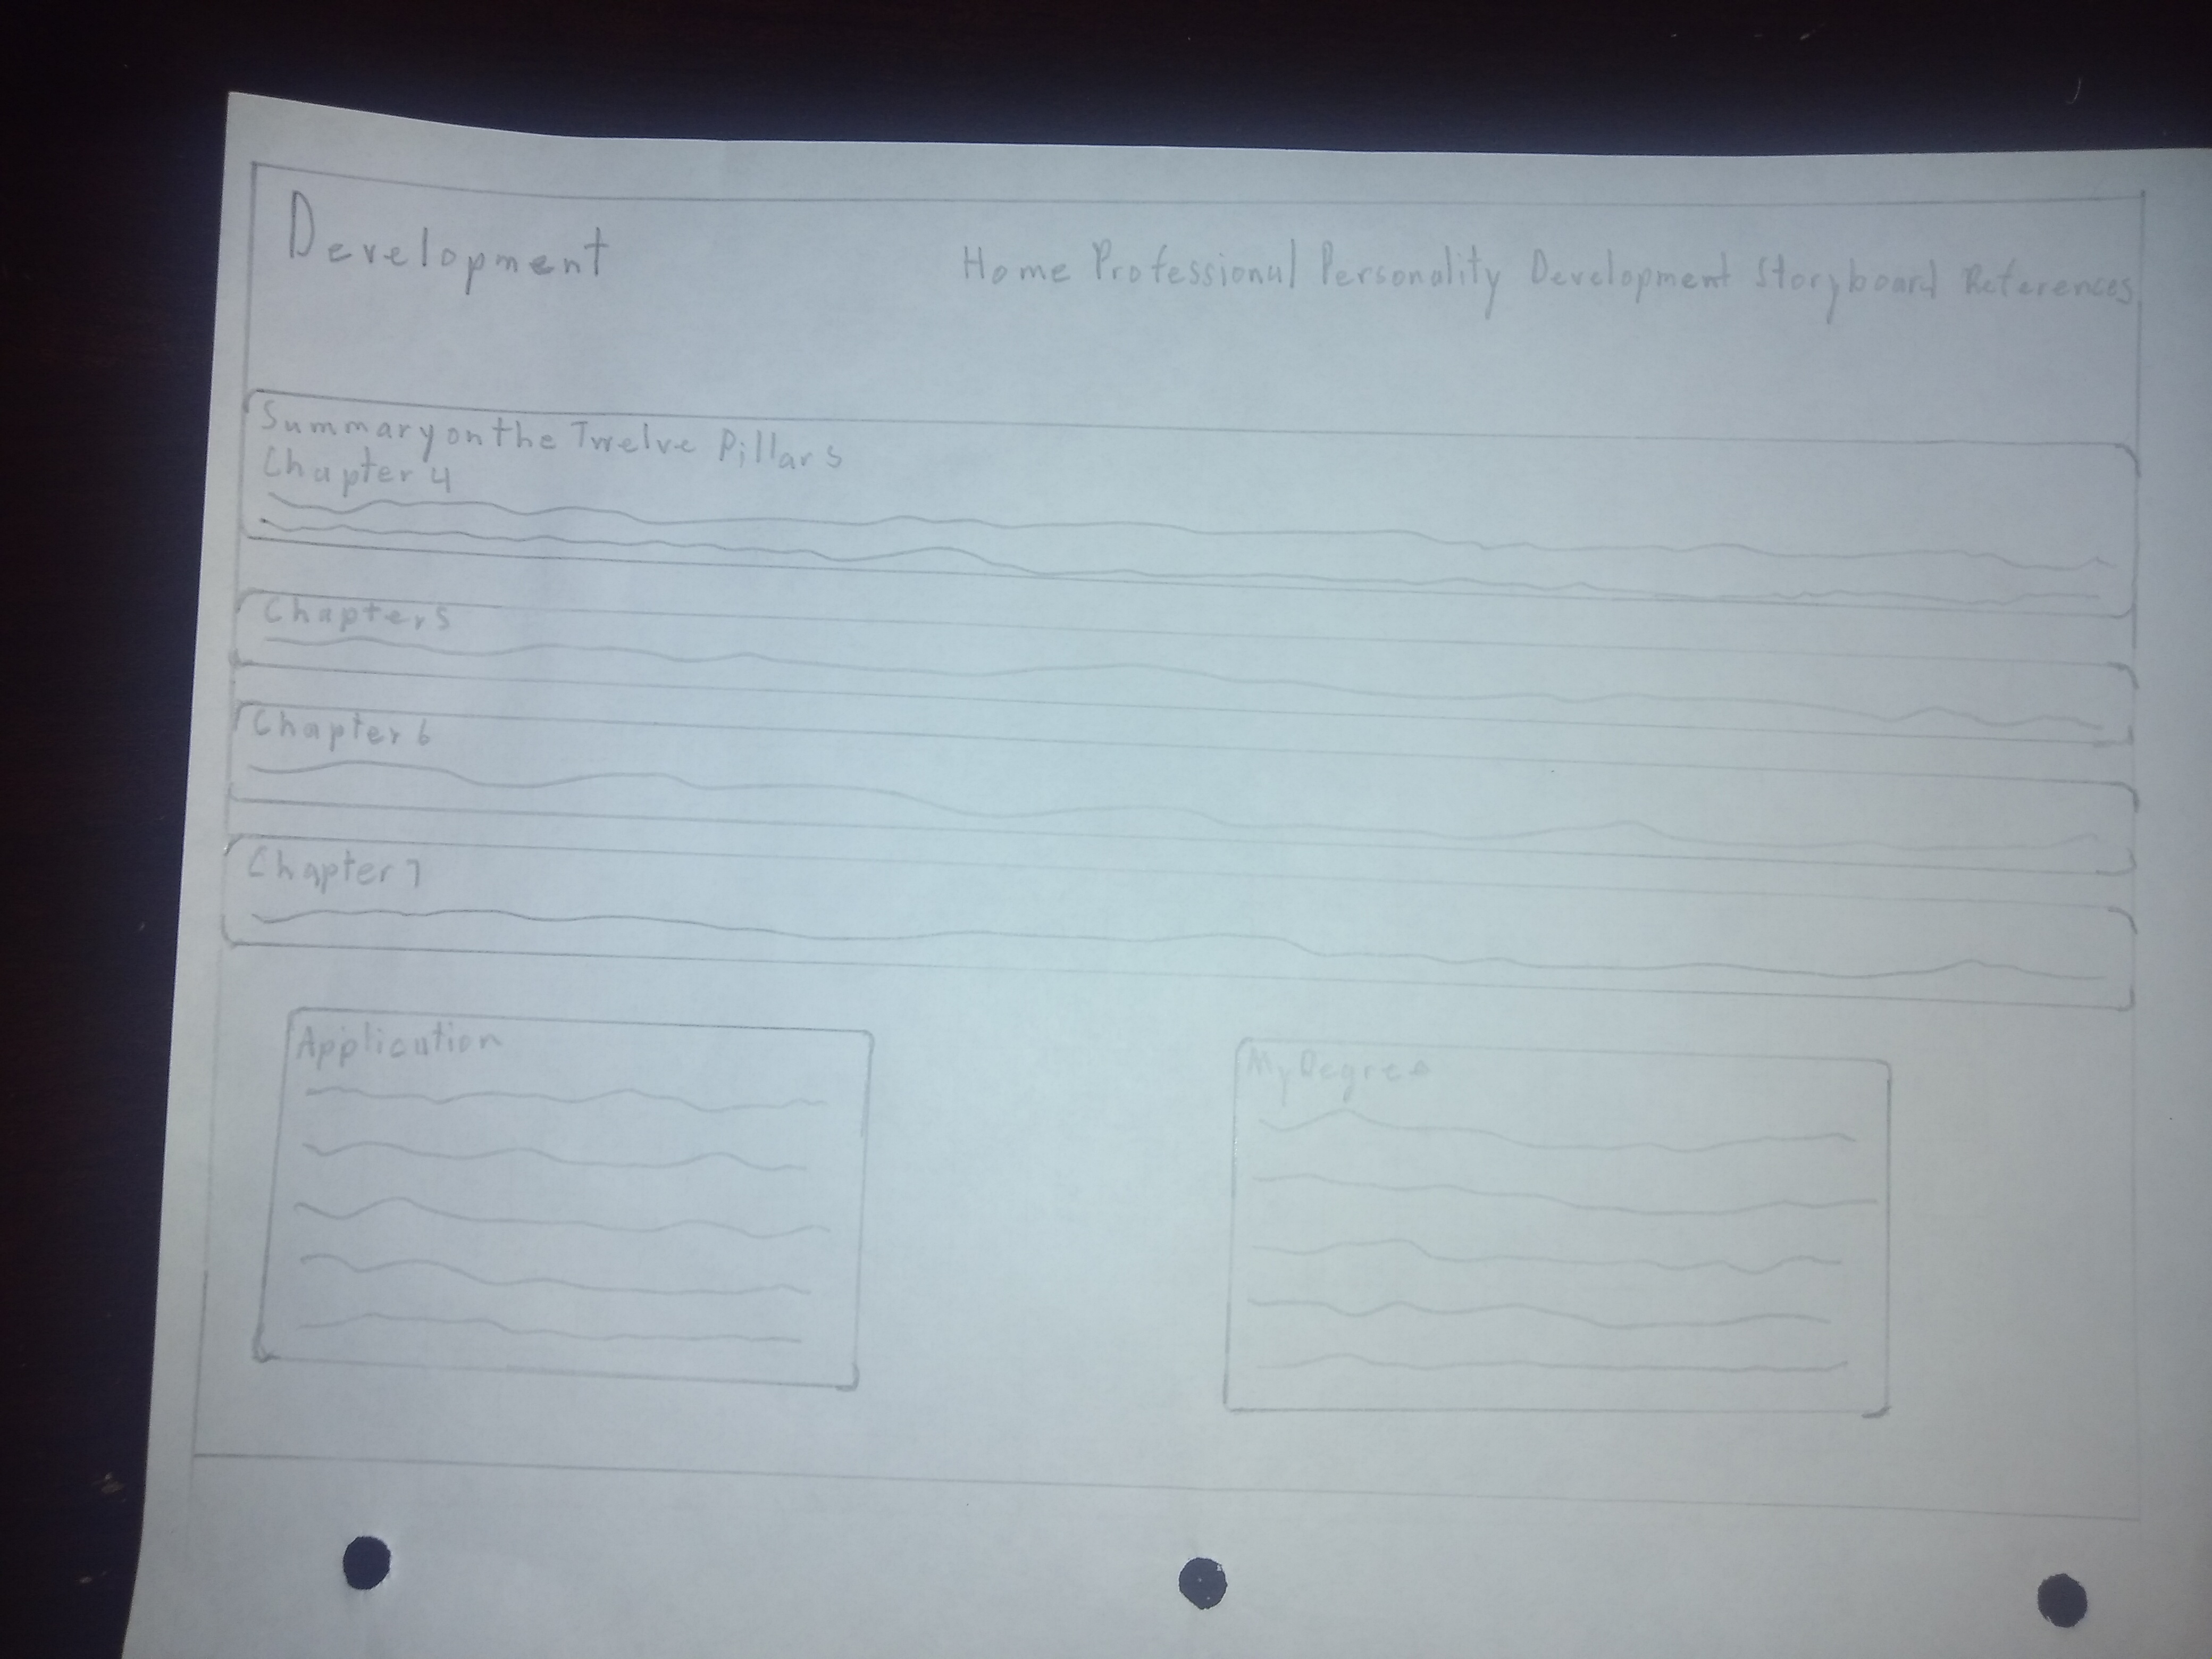 Development
Home Professional Personality Development Storyboard References
Summary on the Twelve Pillars
Chapter 4
Chapter 5
Chapter 6
Chapter 7
Application
My Degree